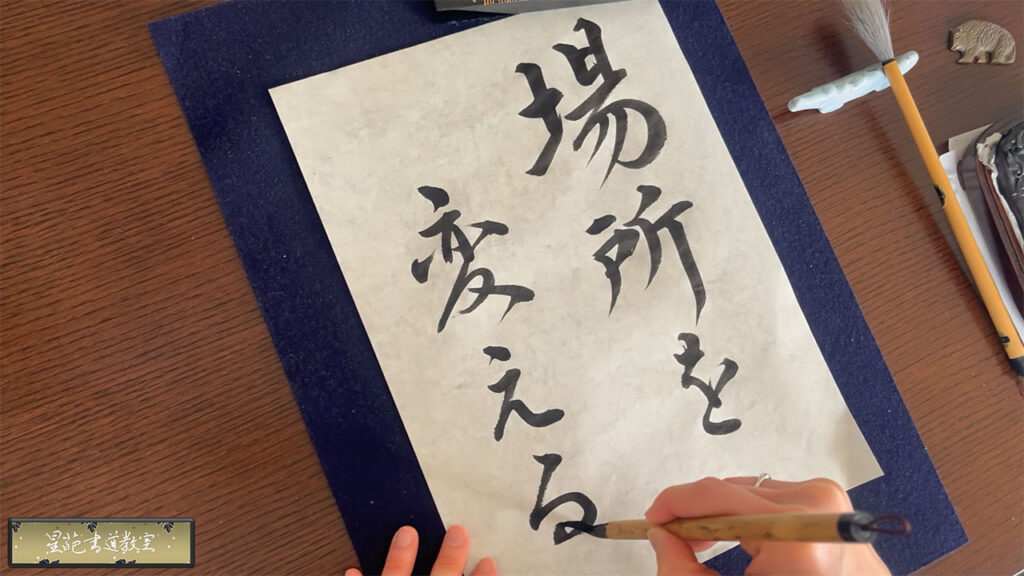 場所を
変える
星苑書道教室